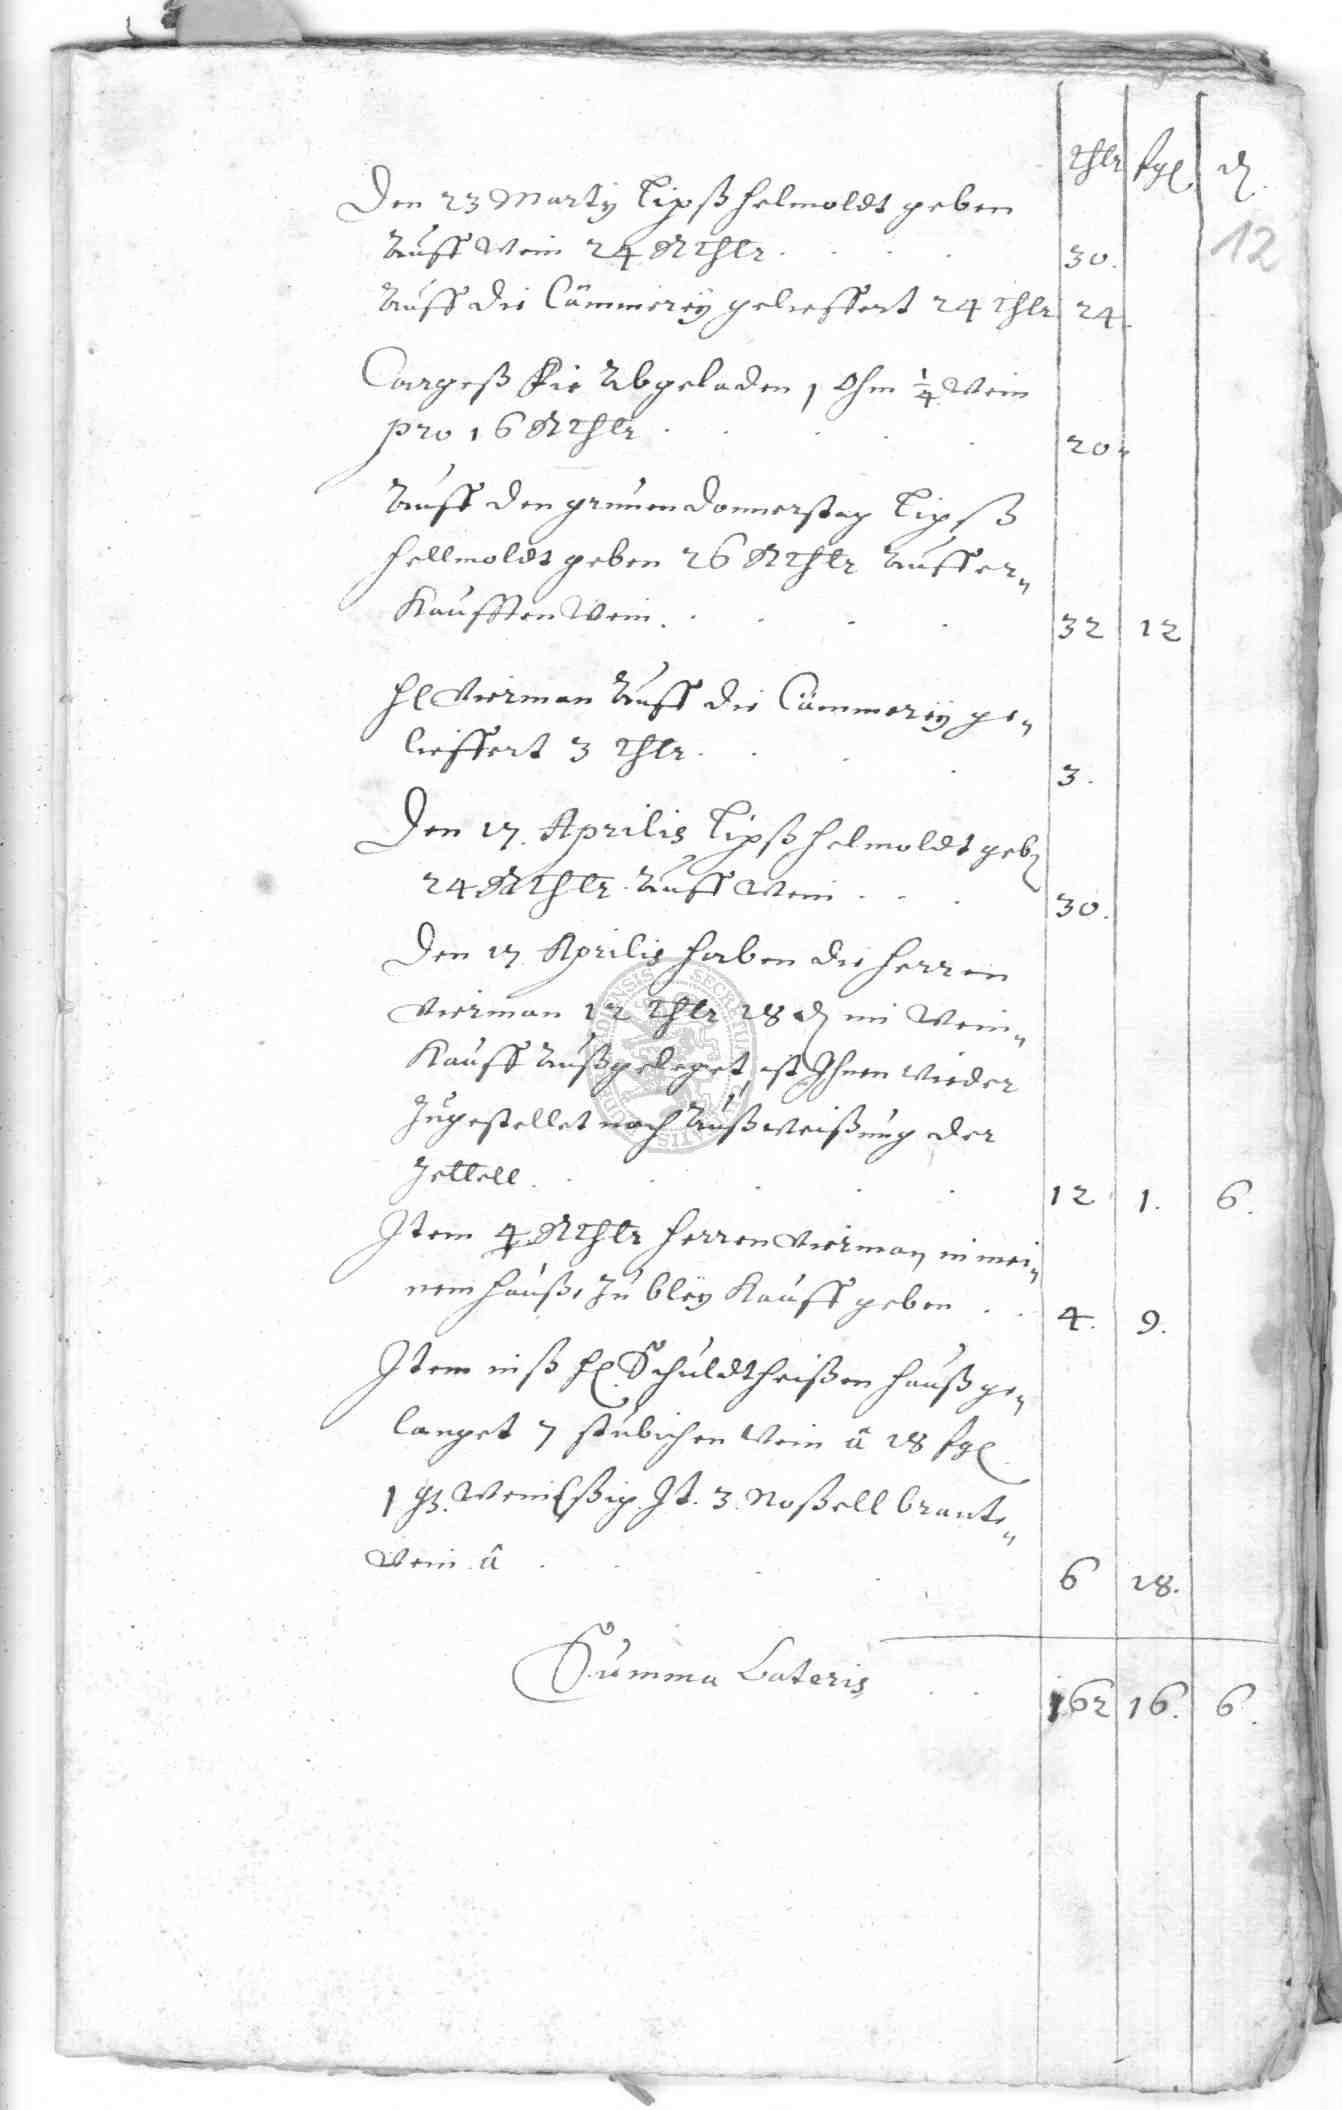 thlr sgl ₰
12
Den 23 Martij Lipß Helmoldt geben
auff Wein 24 Rthlr. 30.
Auff die Cämmereÿ gelieffert 24 thlr 24.
abgeladen 1 Ohm ¼ Wein
pro 16 Rthlr. 20.
Auff den grünen donnerstag Lipß
Hellmoldt geben 26 Rthlr auff er„
kaufften Wein. 32 12
Hl Vierman auff die Cämmereÿ ge„
lieffert 3 thlr. 3.
Den 17. Aprilis Lipß Helmoldt geb
24 Rthlr. auff Wein 30.
Den 17 Aprilis haben die Herren
Vierman 12 thlr 18 ₰ im Wein„
kauff außgeleget, ist Ihnen wieder
zugestellet nach außweißung der
Zettell. 12 1. 6.
Item 4 Rthlr Herren Vierman in mei„
nem Hauße zu bleÿ kauff geben 4. 9.
Item auß Hl. Schuldtheißen Hauß ge„
langet 7 stübichen Wein â 28 sgl
1 Wein Eßig. It. 3. Noßell brante„
wein â 6 28.
Summa Lateris 162 16. 6.